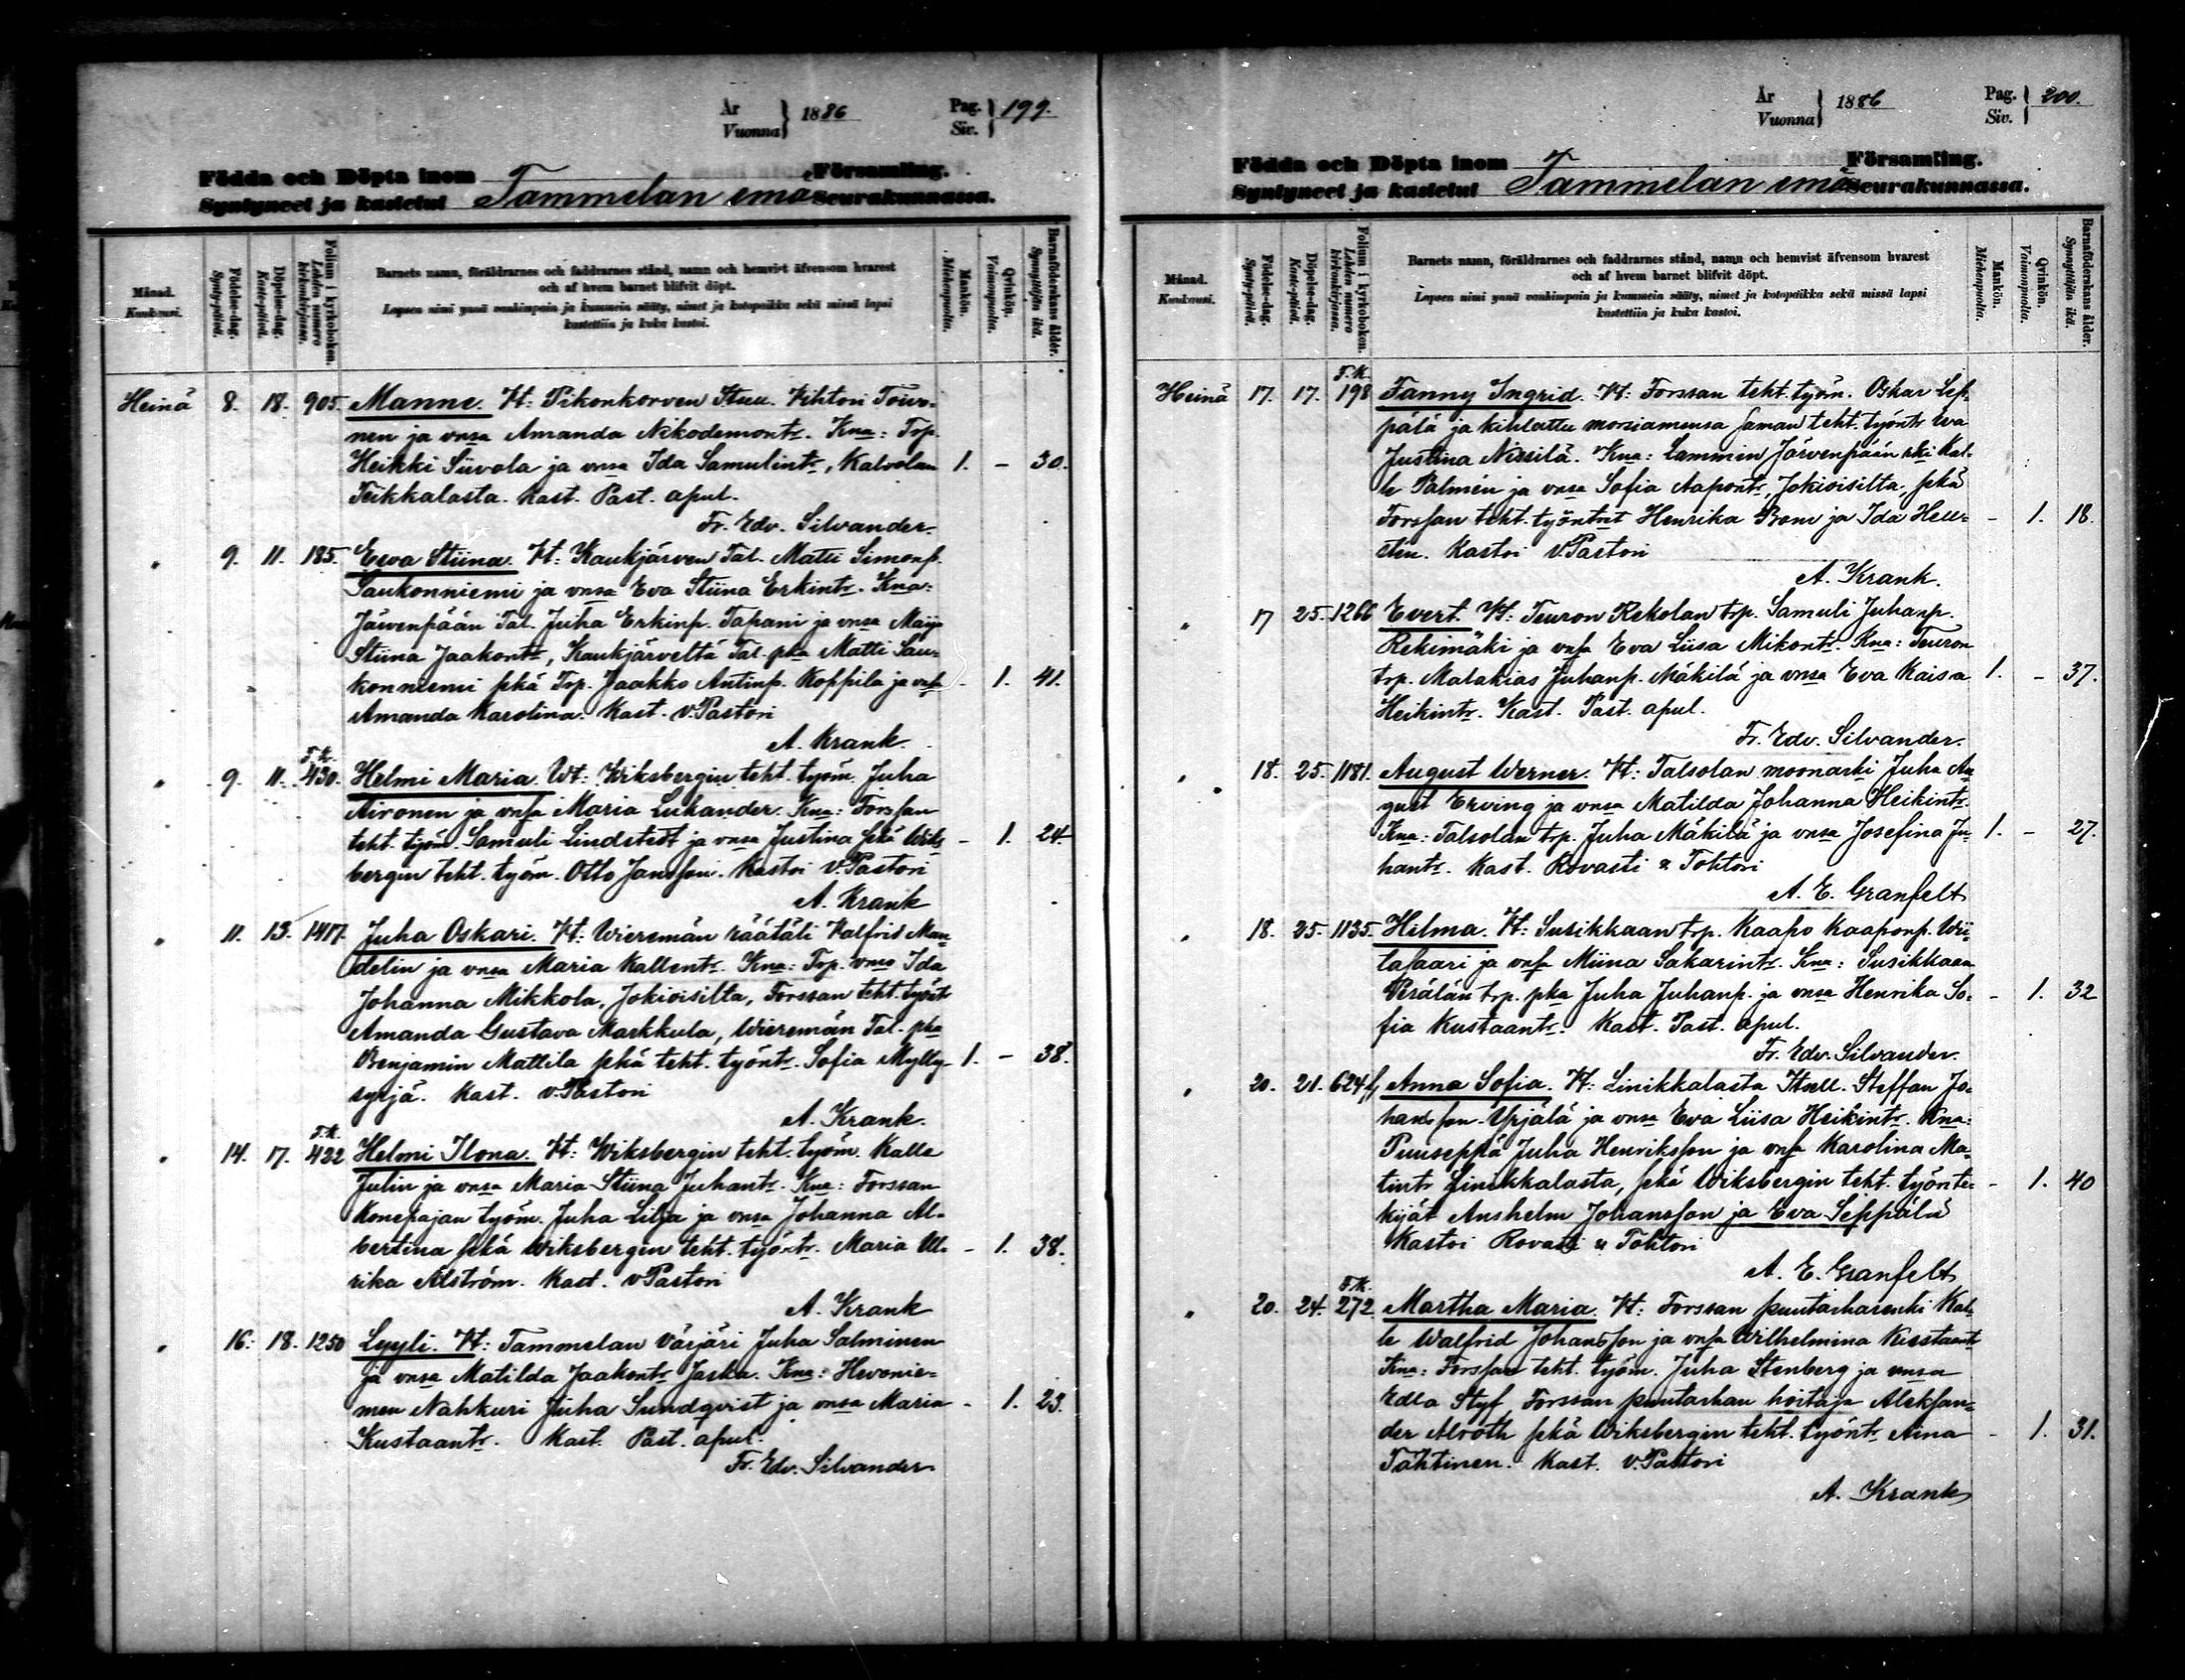 År
Vuonna } 1886
Pag.
Siv. } 199.
Födda och Döpta inom Församling.
Syntyneet ja kastetut Tammelan emä Seurakunnassa.
Månad.
Kuukausi.
Födelse-dag.
Synty-päivä.
Döpelse-dag.
Kaste-päivä.
Folium i kyrkoboken.
Lehden numero kirkonkirjassa.
Barnets namn, föräldrarnes och faddrarnes stånd, namn och hemvist äfvensom hvarest
och af hvem barnet blifvit döpt.
Lapsen nimi ynnä vanhimpain ja kummein sääty, nimet ja kotopaikka sekä missä lapsi
kastettiin ja kuka kastoi.
Mankön.
Miehenpuolia.
Qvinkön.
Vaimonpuolia.
Barnaföderskans ålder.
Synnyttäjän ikä.
Heinä 8. 18. 905. Manne. Vt: Pikonkorven Itsu. Vihtori Toivo-
nen ja vnsa Amanda Nikodemontr. Kna: Trp.
Heikki Siivola ja vnsa Ida Samulintr, Kalvolan 1. - 30.
Teikkalasta. Kast. Past. apul.
Fr. Edv. Silvander.
" 9. 11. 185. Eeva Stiina. Vt: Kaukjärven Tal. Matti Simonp.
Saukonniemi ja vnsa Eva Stiina Erkintr. Kna:
Järvenpään Tal. Juha Erkinp. Tapani ja vnsa Maija
Stiina Jaakontr, Kaukjärveltä Tal. pka Matti Sau-
konniemi skä Trp. Jaakko Antinp. Koppila ja vnsa - 1. 41.
Amanda Karolina. Kast. v.Pastori
A. Krank.
F.K.
" 9. 11. 430. Helmi Maria. Vt: Wiksbergin teht. työm. Juha
Aironen ja vnsa Maria Lukander. Kna: Forssan
teht. työm. Samuli Lindstedt ja vnsa Justina skä Wiks- - 1. 24
bergin teht. työm. Otto Jansson. Kastoi v.Pastori
A. Krank
" 11. 13. 1417. Juha Oskari. Vt: Wieremän räätäli Kalfrid Man-
delin ja vnsa Maria Kallentr. Kna: Trp. vmo Ida
Johanna Mikkola, Jokioisilta, Forssan teht. työnt
Amanda Gustava Markkula, Wieremän Tal. pka
Benjamin Mattila skä teht. työntr. Sofia Mylly- 1. - 38.
syrjä. Kast. v.Pastori
A. Krank.
F.K.
" 14. 17. 422 Helmi Ilona. Vt: Wiksbergin teht. työm. Kalle
Julin ja vnsa Maria Stiina Juhantr. Kna: Forssan
Konepajan työm. Juha Lilja ja vnsa Johanna Al-
bertina skä Wiksbergin teht. työntr. Maria Ul- - 1. 38.
rika Alström. Kast. v.Pastori
A. Krank
" 16. 18. 1250 Lyyli. Vt: Tammelan Värjäri Juha Salminen
ja vnsa Matilda Jaakontr Jaska. Kna: Hevonie-
men Nahkuri Juha Sundqvist ja vnsa Maria - 1. 23.
Kustaantr. Kast. Past. apul.
Fr. Edv. Silvander
År
Vuonna } 1886
Pag.
Siv. } 200.
Födda och Döpta inom Församling.
Syntyneet ja kastetut Tammelan emä Seurakunnassa.
Månad.
Kuukausi.
Födelse-dag.
Synty-päivä.
Döpelse-dag.
Kaste-päivä.
Folium i kyrkoboken.
Lehden numero kirkonkirjassa.
Barnets namn, föräldrarnes och faddrarnes stånd, namn och hemvist äfvensom hvarest
och af hvem barnet blifvit döpt.
Lapsen nimi ynnä vanhimpain ja kummein sääty, nimet ja kotopaikka sekä missä lapsi
kastettiin ja kuka kastoi.
Mankön.
Miehenpuolia.
Qvinkön.
Vaimonpuolia.
Barnaföderskans ålder.
Synnyttäjän ikä.
F.K.
Heinä 17. 17. 198 Fanny Ingrid. Vt: Forssan teht. työm. Oskar Lep-
pälä ja kihlattu morsiamensa saman teht. työntr Eva
Justina Nissilä. Kna: Lammin Järvenpään rki Kal-
le Palmén ja vnsa Sofia Aapontr, Jokioisilta, skä
Forssan teht. työntrt Henrika Bom ja Ida Hell- - 1. 18.
stén. Kastoi v.Pastori
A. Krank.
" 17 25. 1266 Evert. Vt: Teuron Rekolan trp. Samuli Juhanp.
Rekimäki ja vnsa Eva Liisa Mikontr. Kna: Teuron
trp. Malakias Juhanp. Mäkilä ja vnsa Eva Kaisa 1. - 37.
Heikintr. Kast. Past. apul.
Fr. Edv. Silvander.
" 18. 25. 1181. August Werner. Vt: Talsolan moonarki Juha Au-
gust Erving ja vnsa Matilda Johanna Heikintr.
Kna: Talsolan trp. Juha Mäkilä ja vnsa Josefina Ju- 1. - 27.
hantr. Kast. Rovasti & Tohtori
A. E. Granfelt
" 18. 25. 1135. Hilma. Vt: Susikkaan trp. Kaapo Kaaponp. Wii-
tasaari ja vnsa Miina Sakarintr. Kna: Susikkaan
Perälän trp. pka Juha Juhanp. ja vnsa Henrika So- - 1. 32
fia Kustaantr. Kast. Past. apul.
Fr. Edv. Silvander.
" 20. 21. 624½ Anna Sofia. Vt: Linikkalasta Itsell. Steffan Jo-
hansson Yrjälä ja vnsa Eva Liisa Heikintr. Kna:
Puuseppä Juha Henriksson ja vnsa Karolina Ma-
tintr Linikkalasta, skä Wiksbergin teht. työnte- - 1. 40
kijät Anshelm Johansson ja Eva Seppälä
Kastoi Rovasti & Tohtori
A. E. Granfelt
F.K.
" 20. 24. 272 Martha Maria. Vt: Forssan puutarharenki Kal-
le Walfrid Johansson ja vnsa Wilhelmina Kustaantr
Kna: Forssan teht. työm. Juha Stenberg ja vnsa
Edla Styf, Forssan puutarhan hoitaja Aleksan-
der Alroth skä Wiksbergin teht. työntr Aina - 1. 31.
Tähtinen. Kast. v.Pastori
A. Krank